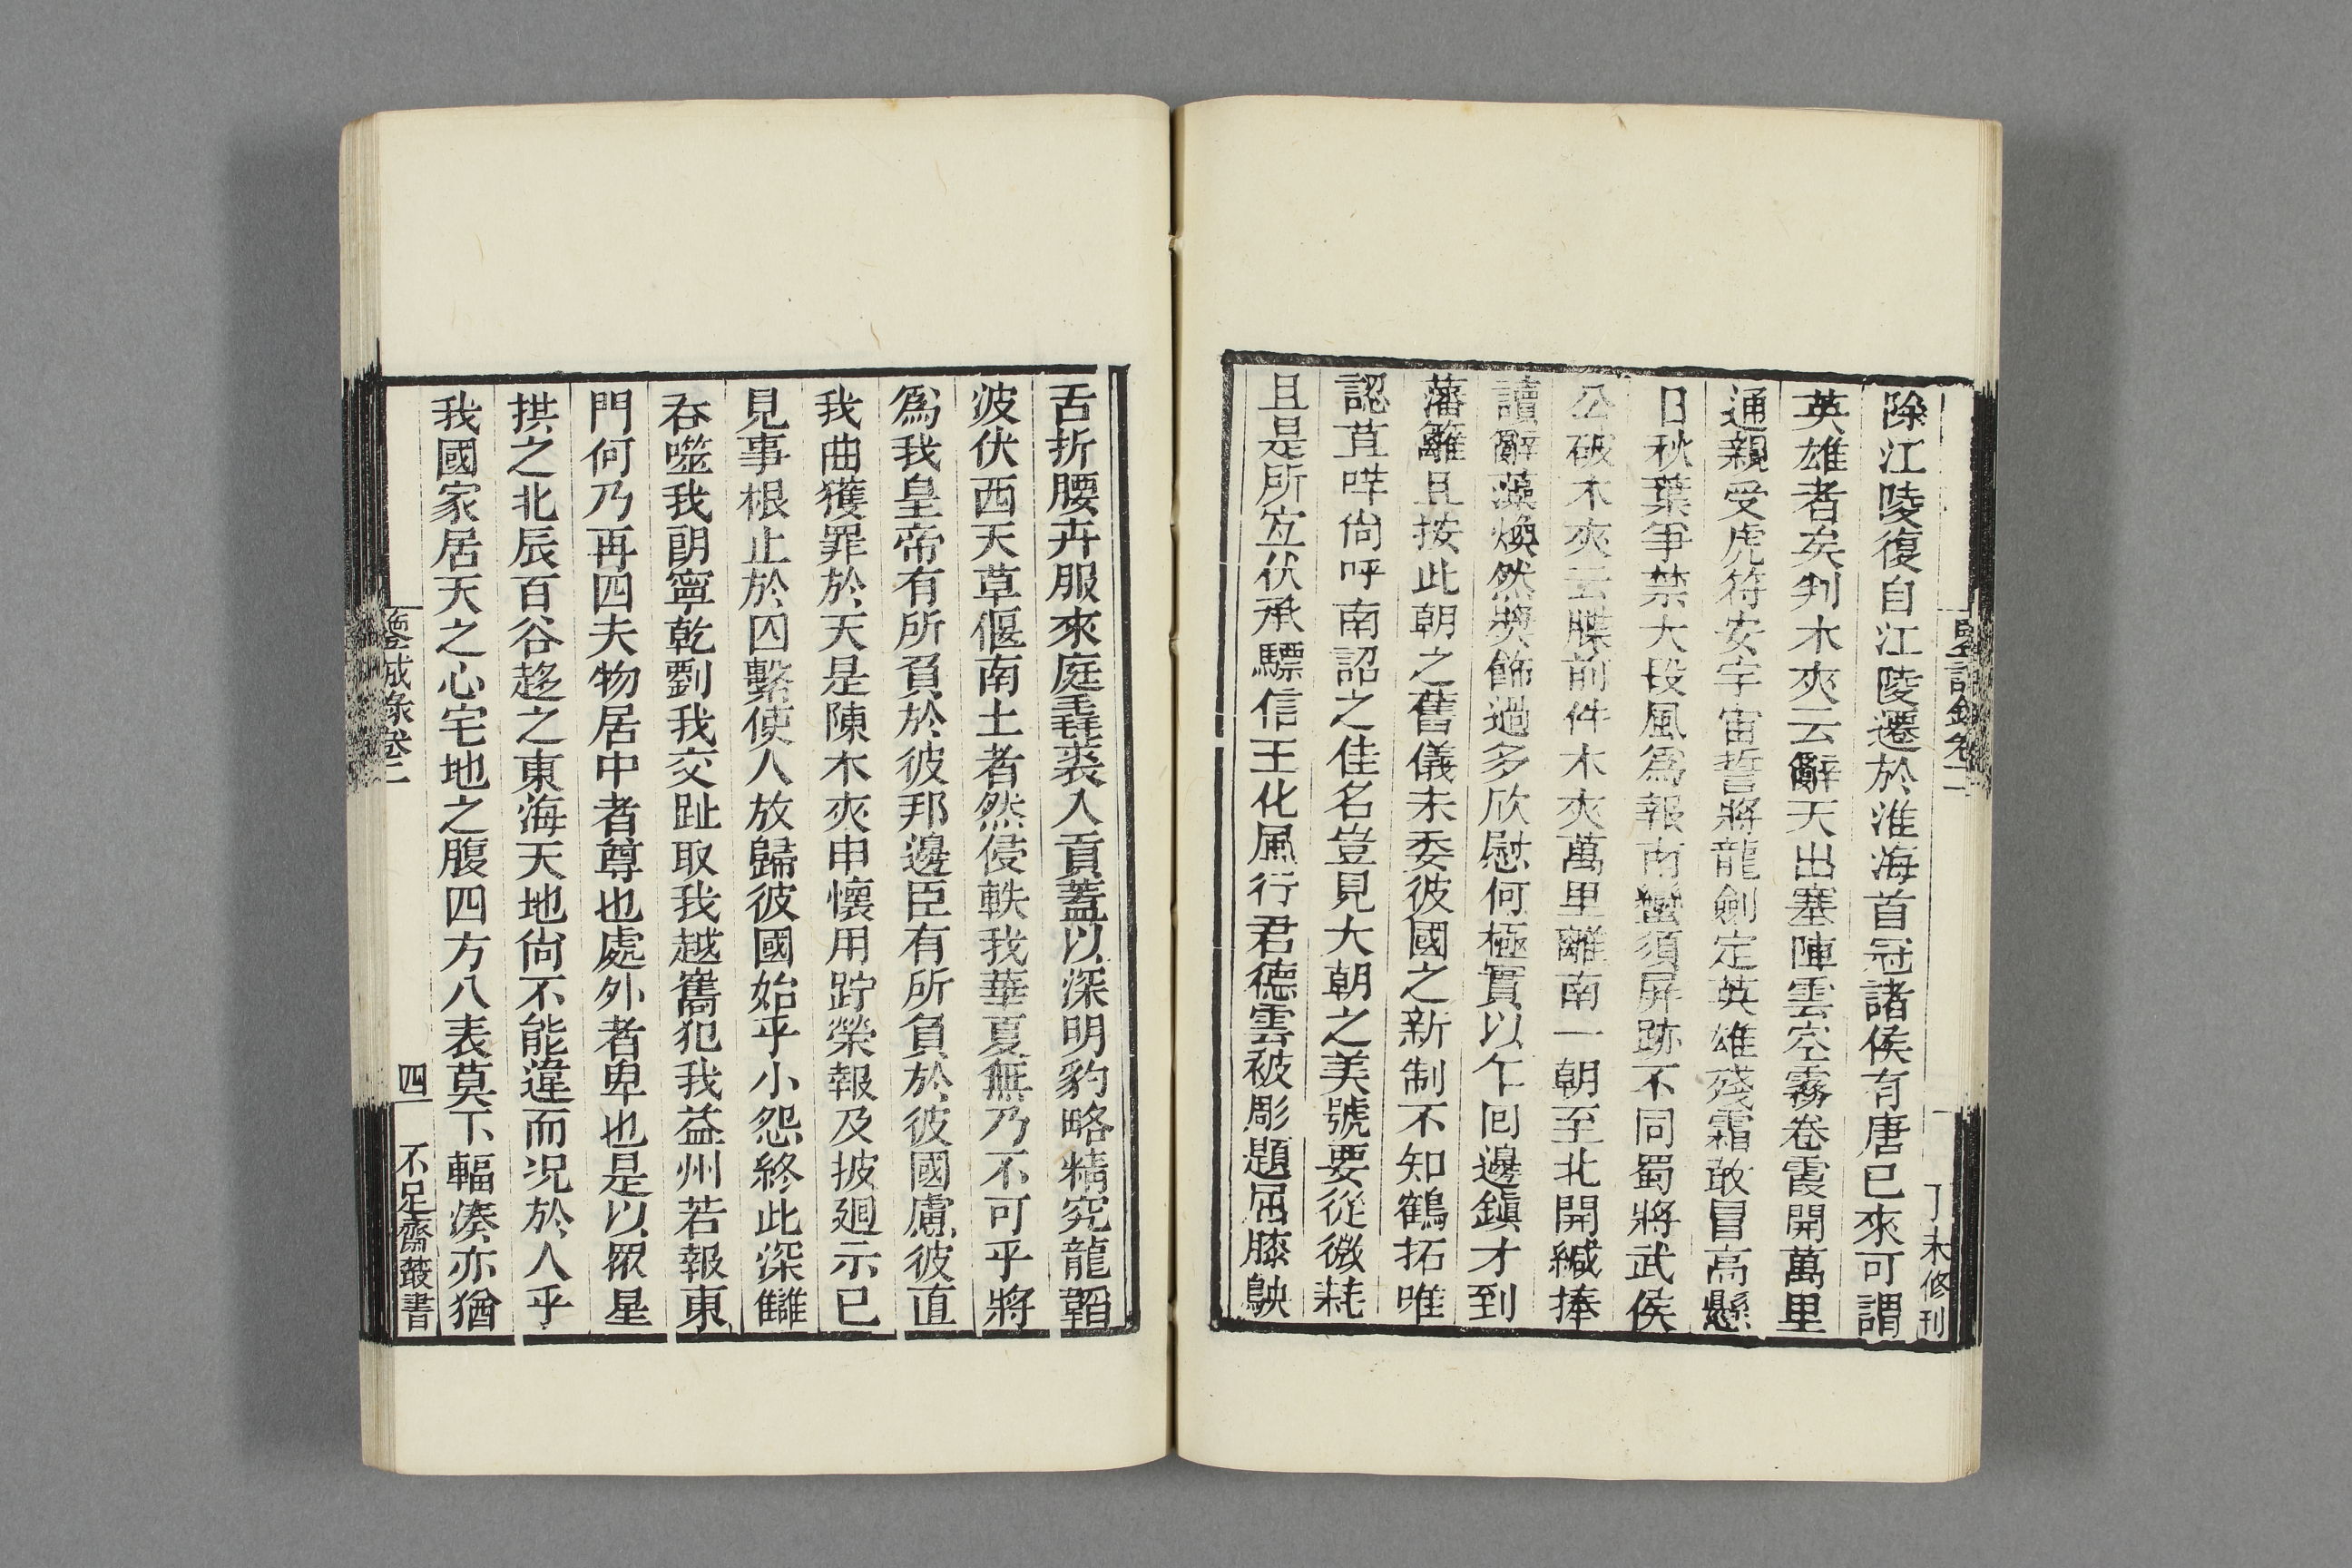 除江陵復自江陵遷於淮海首冠諸侯有唐已來可謂
英雄者矣判木夾云辭天出塞陣雲空霧卷霞開萬里
通親受虎符安宇宙誓將龍劍定英雄殘霜敢冒高懸
日秋葉爭禁大段風爲報南蠻須屏跡不同蜀將武侯
公破木夾云牒前件木夾萬里離南一朝至北開緘捧
讀辭藻煥然奬飾過多欣慰何極實以乍回邊鎭才到
藩籬且按此朝之舊儀未委彼國之新制不知鶴拓唯
認苴咩尙呼南詔之佳名豈見大朝之美號要從微耗
且是所宐伏承驃信王化風行君德雲被彫題屈膝鴃
鑒誡錄卷二
丁未修刊
舌折腰卉服來庭毳裘入貢蓋以深明豹略精究龍韜
波伏西天草偃南土者然侵軼我華夏無乃不可乎將
爲我皇帝有所負於彼邦邊臣有所負於彼國慮彼直
我曲獲罪於天是陳木夾申懷用貯榮報及披廻示已
見事根止於囚繫使人放歸彼國始乎小怨終此深讎
吞噬我朗寧乾劉我交趾取我越巂犯我益州若報東
門何乃再四夫物居中者尊也處外者卑也是以眾星
拱之北辰百谷趍之東海天地尙不能違而况於人乎
我國家居天之心宅地之腹四方八表莫不輻湊亦猶
鑒戒錄卷二
四
不足齋叢書